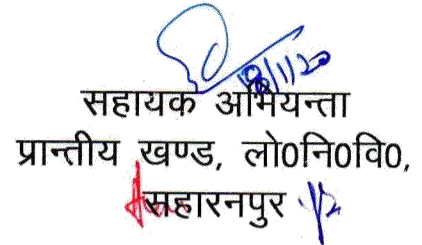 18/1/20
सहायक अभियन्ता
प्रान्तीय खण्ड, लो0नि0वि0,
सहारनपुर